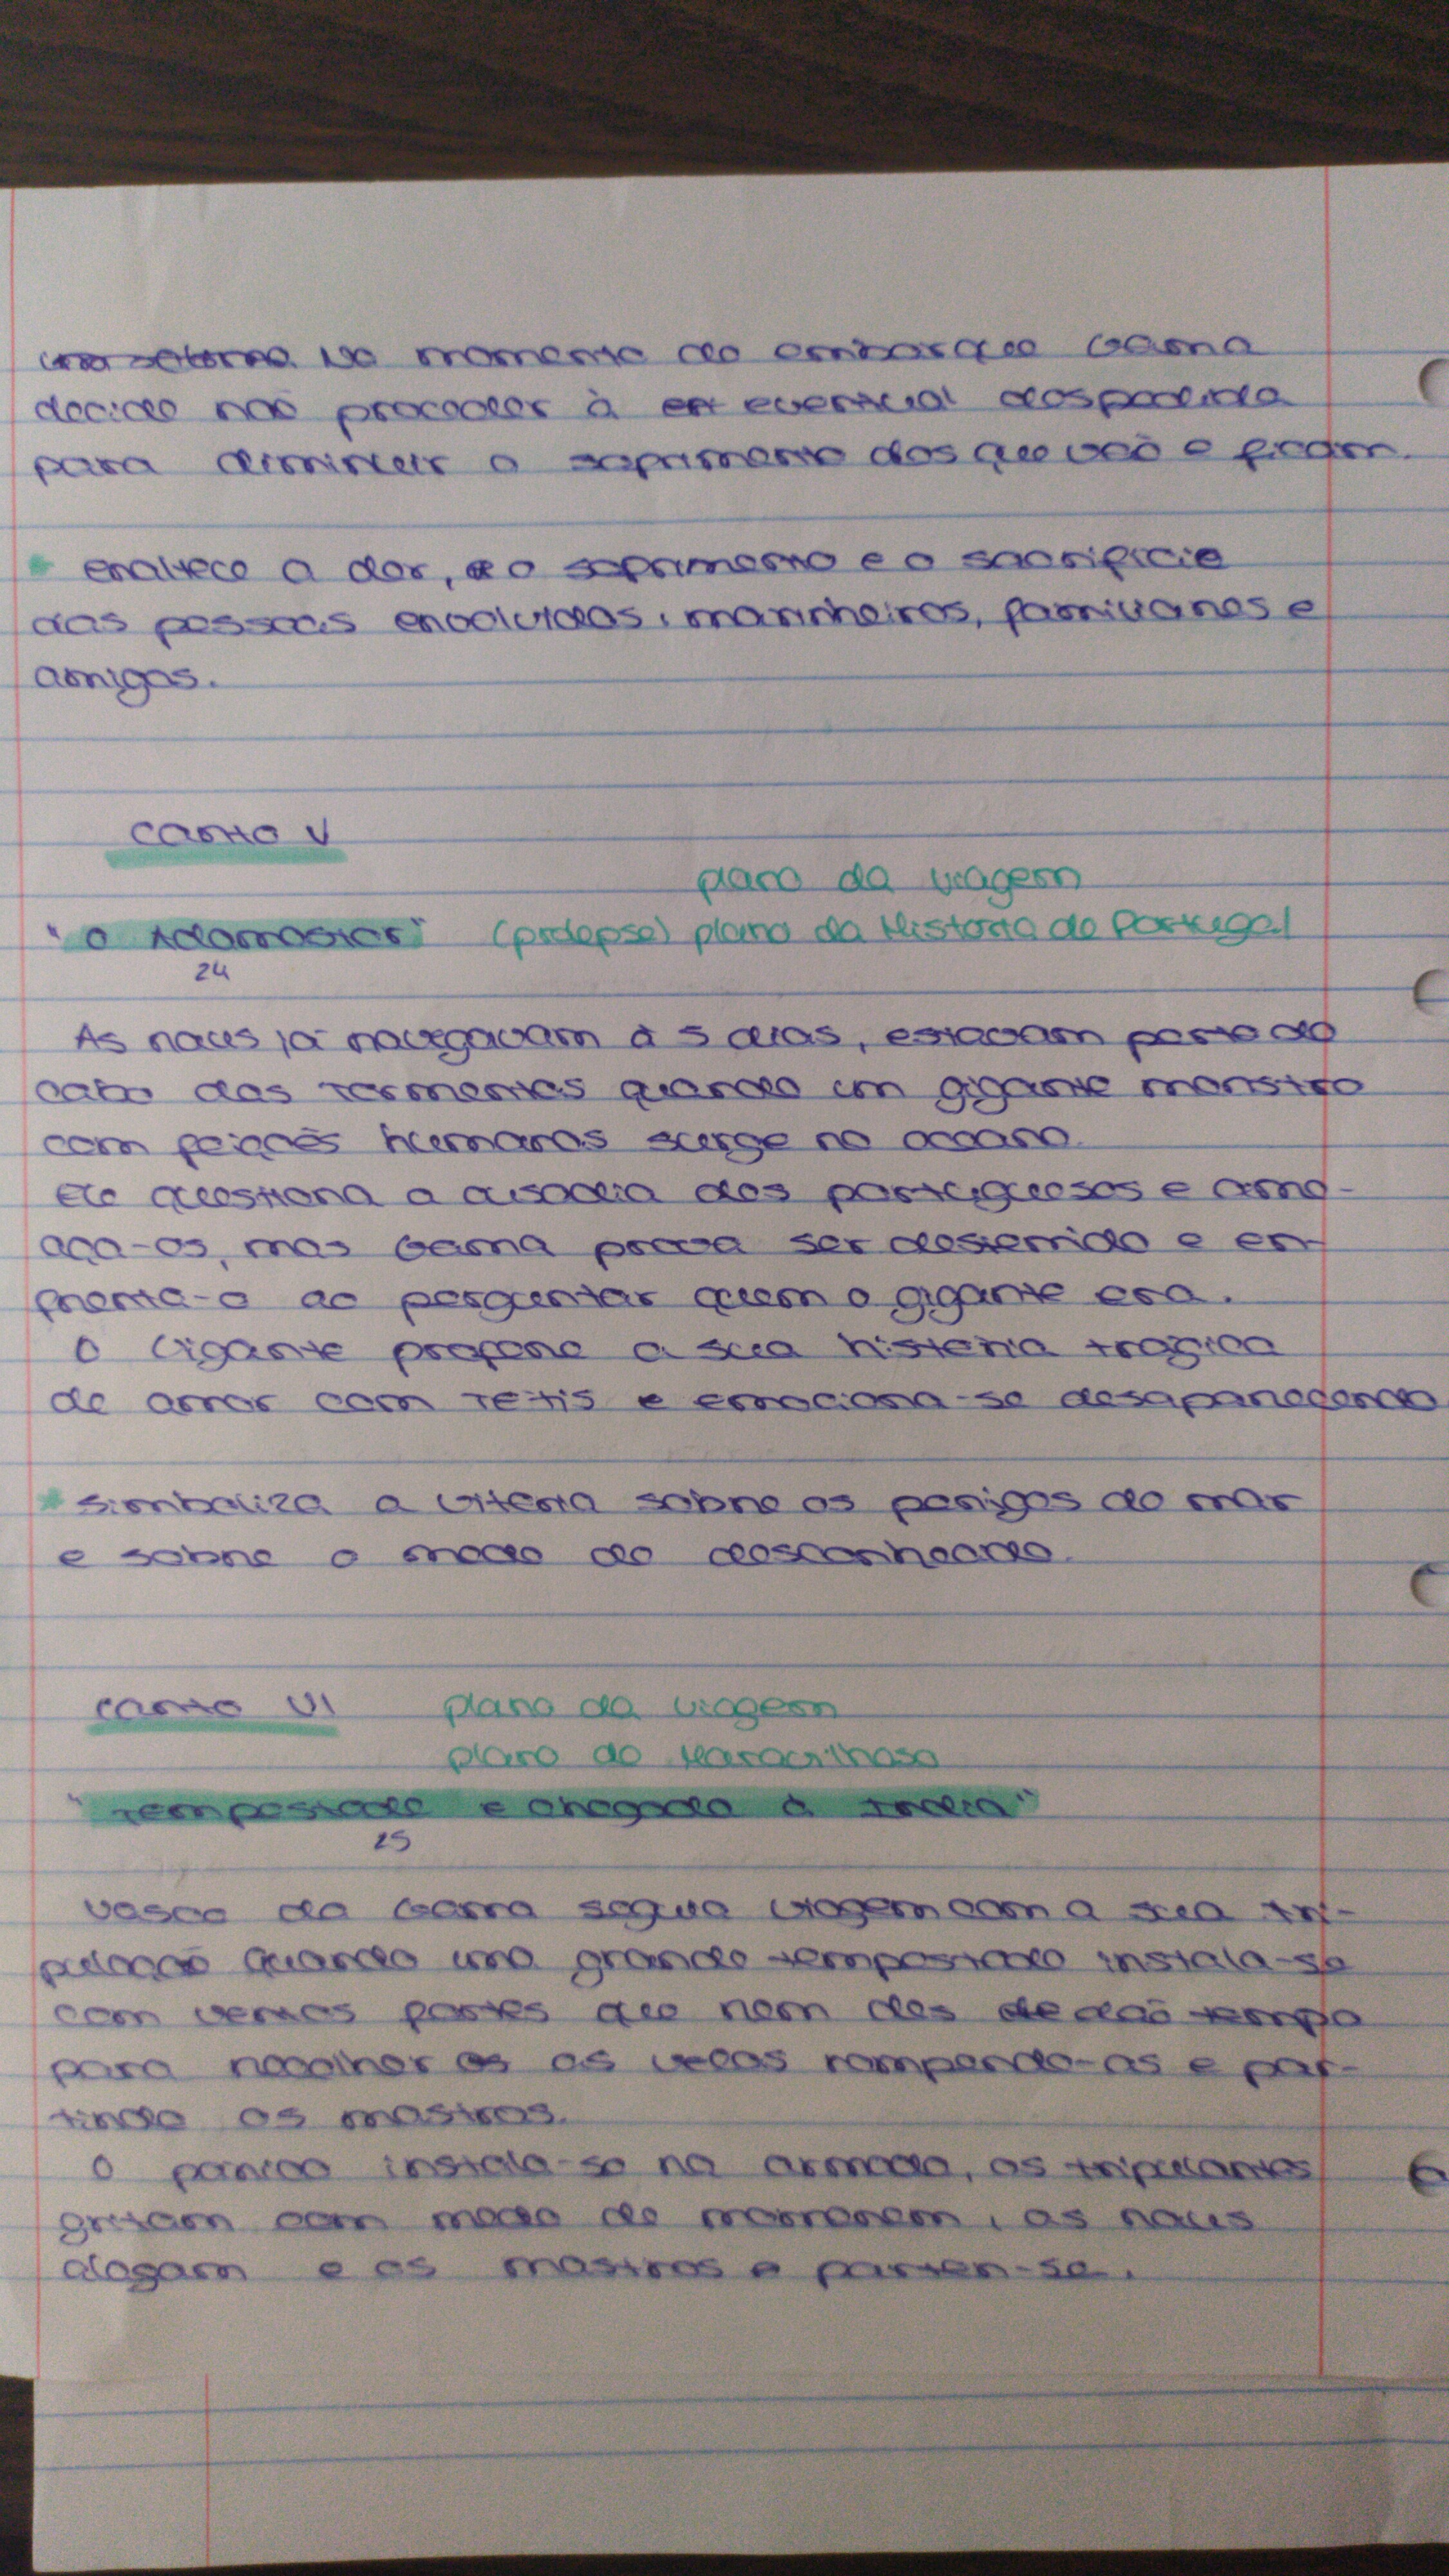 No momento do embarque Gama
decide não proceder à eventual despedida
para diminuir o sofrimento dos que vão e ficam.
* enaltece a dor, o sofrimento e o sacrificio
das pessoas envolvidas, marinheiros, familiares e
amigos.
Canto V
plano da viagem
"O Adamastor" (prolepse) plano da História de Portugal
24
As naus já navegavam à 5 dias, estavam perto do
cabo das Tormentas quando um gigante monstro
com feições humanas surge no oceano.
Ele questiona a ousadia dos portugueses e ame-
aça-os, mas Gama prova ser destemido e en-
frenta-o ao perguntar quem o gigante era.
O Gigante profere a sua história trágica
de amor com Tetis e emociona-se desaparecendo
* Simboliza a vitória sobre os perigos do mar
e sobre o medo do desconhecido.
Canto VI plano da viagem
plano do Maravilhoso
"Tempestade e chegada à India"
25
Vasco da Gama seguia viagem com a sua tri-
pulação quando uma grande tempestade instala-se
com ventos fortes que nem dão tempo
para recolher as velas rompendo-as e par-
tindo os mastros.
O pânico instala-se na armada, os tripulantes
gritam com medo de morrerem, as naus
alagam e os mastros partem-se.